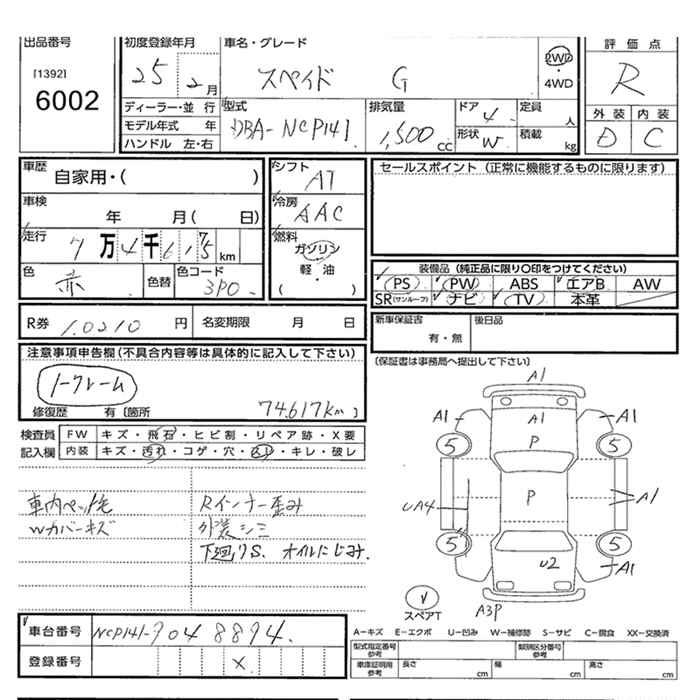 出品番号
[1392]
6002
初度登録年月
25 2月
車名・グレード
スペイド G
2WD
・
4WD
評価点
R
ディーラー・並 行
モデル年式 年
ハンドル 左・右
型式
DBA-NCP141
排気量
1,500 cc
ドア 4
形状 W
定員 人
積載 kg
外装 内装
D C
車歴
自家用・( )
車検
年 月( 日)
走行
7万4千617km
色
赤
色替
色コード
3P0
シフト
AT
冷房
AAC
燃料
ガソリン
・
軽・油
( )
セールスポイント (正常に機能するものに限ります)
装備品 (純正品に限り〇印をつけてください)
PS PW ABS エアB AW
SR(サンルーフ) ナビ TV 本革
R券 1.0210 円 名変期限 月 日
新車保証書
有・無
後日品
(保証書は事務局へ提出して下さい)
注意事項申告欄(不具合内容等は具体的に記入して下さい)
ノークレーム
修復歴 有〔箇所
74.617km 〕
検査員
記入欄
FW キズ・飛石・ヒビ割・リペア跡・X要
内装 キズ・汚れ・コゲ・穴・凹・キレ・破レ
車内ペット毛
Wカバーキズ
Rインナー歪み
外装シミ
下廻りS、オイルにじみ.
A1
A1 A1 A1
P
5 5
P
UA4 A1
5 5
U2
A1
スペアT
A3P
車台番号 NCP141-9048894.
登録番号 X.
A-キズ E-エクボ U-凹み W-補修跡 S-サビ C-腐食 XX-交換済
型式指定番号
参考
類別区分番号
参考
車庫証明用
参考
長さ cm 幅 cm 高さ cm